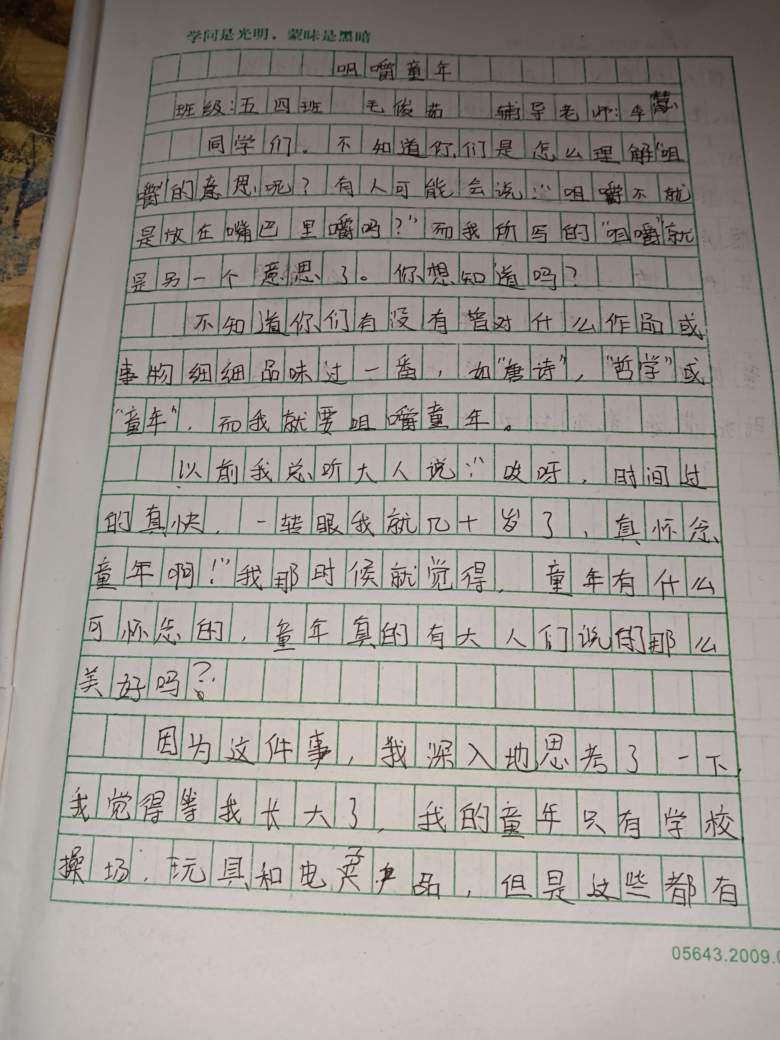 学问是光明，蒙昧是黑暗
咀嚼童年
班级:五四班 毛俊茹 辅导老师:李慧
同学们，不知道你们是怎么理解“咀
嚼”的意思呢?有人可能会说:“咀嚼不就
是放在嘴巴里嚼吗?”而我所写的“咀嚼”就
是另一个意思了。你想知道吗?
不知道你们有没有曾对什么作品或
事物细细品味过一番，如“唐诗”，“哲学”或
“童年”，而我就要咀嚼童年。
以前我总听大人说:“哎呀，时间过
的真快，一转眼我就几十岁了，真怀念
童年啊!”我那时候就觉得，童年有什么
可怀念的，童年真的有大人们说的那么
美好吗?
因为这件事，我深入地思考了一下，
我觉得等我长大了，我的童年只有学校
操场，玩具和电子产品，但是这些都有
05643.2009.0